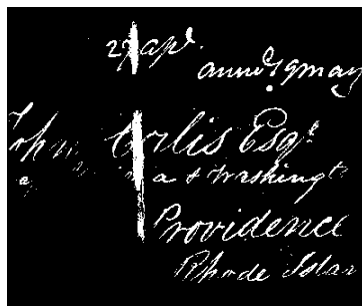 27 apl.
annd 19 may
John Corlis Esqr
a & Washingt
Providence
Rhode Islan